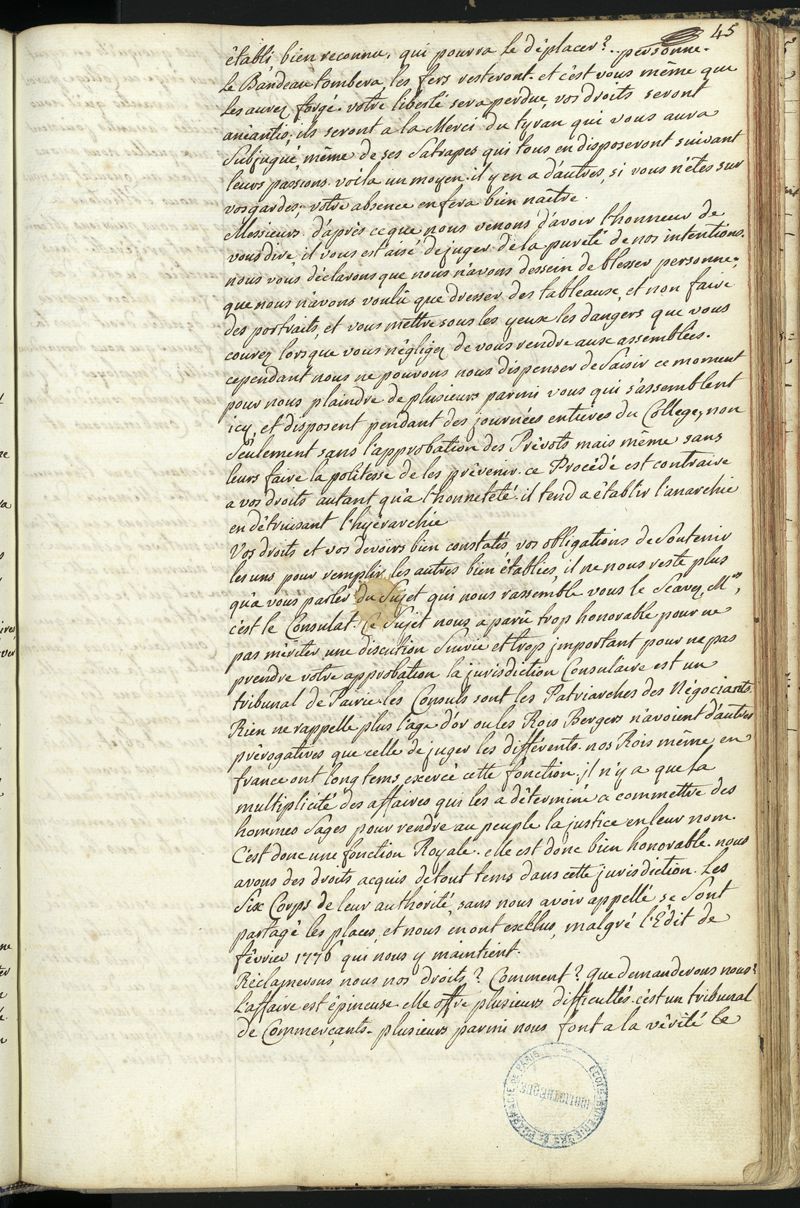 45
établi bien reconnu, qui pourra le déplacer? personne.
Le Bandeau tombera les fers resteront. et c'est vous même que
les aurez forgé. votre liberté sera perdue, vos droits seront
anéantis, ils seront a la Merci du tyran qui vous aura
Subjugué, même de ses Satrapes qui tous en disposeront suivant
leurs passions. voila un moyen. il y en a d'autres, si vous n'êtes sur
vos gardes; votre absence en fera bien naître.
Messieurs d'après ce que nous venons d'avoir l'honneur de
vous dire, il vous est aisé de juger de la pureté de nos intentions.
nous vous déclarons que nous n'avons dessein de blesser personne,
que nous n'avons voulû que dresser des tableaux, et non faire
des portraits, et vous mettre sous les yeux les dangers que vous
courez lorsque vous négligez de vous rendre aux assemblées.
cependant nous ne pouvons nous dispenser de saisir ce moment
pour nous plaindre de plusieurs parmi vous qui s'assemblent
icy, et disposent pendant des journées entières du College, non
Seulement sans l'approbation des Prévots mais même sans
leurs faire la politesse de les prévenir. ce Procédé est contraire
a vos droits autant qu'a l'honneteté. il tend a établir l'anarchie
en détruisant l'hyérarchie
Vos droits et vos devoirs bien constatés, vos obligations de Soutenir
les uns pour remplir les autres bien établies, il ne nous reste plus
qu'a vous parler du Sujet qui nous rassemble vous le Scavez, Mrs,
c'est le Consulat. Ce Sujet nous a parû trop honorable pour ne
pas mériter une discution Suivie et trop jmportant pour ne pas
prendre votre approbation la jurisdiction Consulaire est un
tribunal de Pairie. les Consuls sont les Patriarches des Négociants.
Rien ne rappelle plus l'age d'or ou les Rois Bergers n'avoient d'autres
prérogatives que celle de juger les différents. nos Rois même en
france ont long tems exercé cette fonction, jl n'y a que la
multiplicité des affaires qui les a déterminé a commettre des
hommes Sages pour rendre au peuple la justice en leur nom.
C'est donc une fonction Royale. elle est donc bien honorable. nous
avons des droits acquis de tout tems dans cette jurisdiction. Les
Six Corps de leur authorité, sans nous avoir appellé, se Sont
partagé les places, et nous en ont exclus, malgré l'Édit de
février 1776 qui nous y maintient.
Réclamerons nous nos droits? Comment? Que demanderons nous?
L'affaire est épineuse. elle offre plusieurs difficultés. c'est un tribunal
de Commerçants. plusieurs parmi nous font a la vérité le
ECOLE SUPERIEURE DE PHARMACIE DE PARIS
BIBLIOTHEQUE